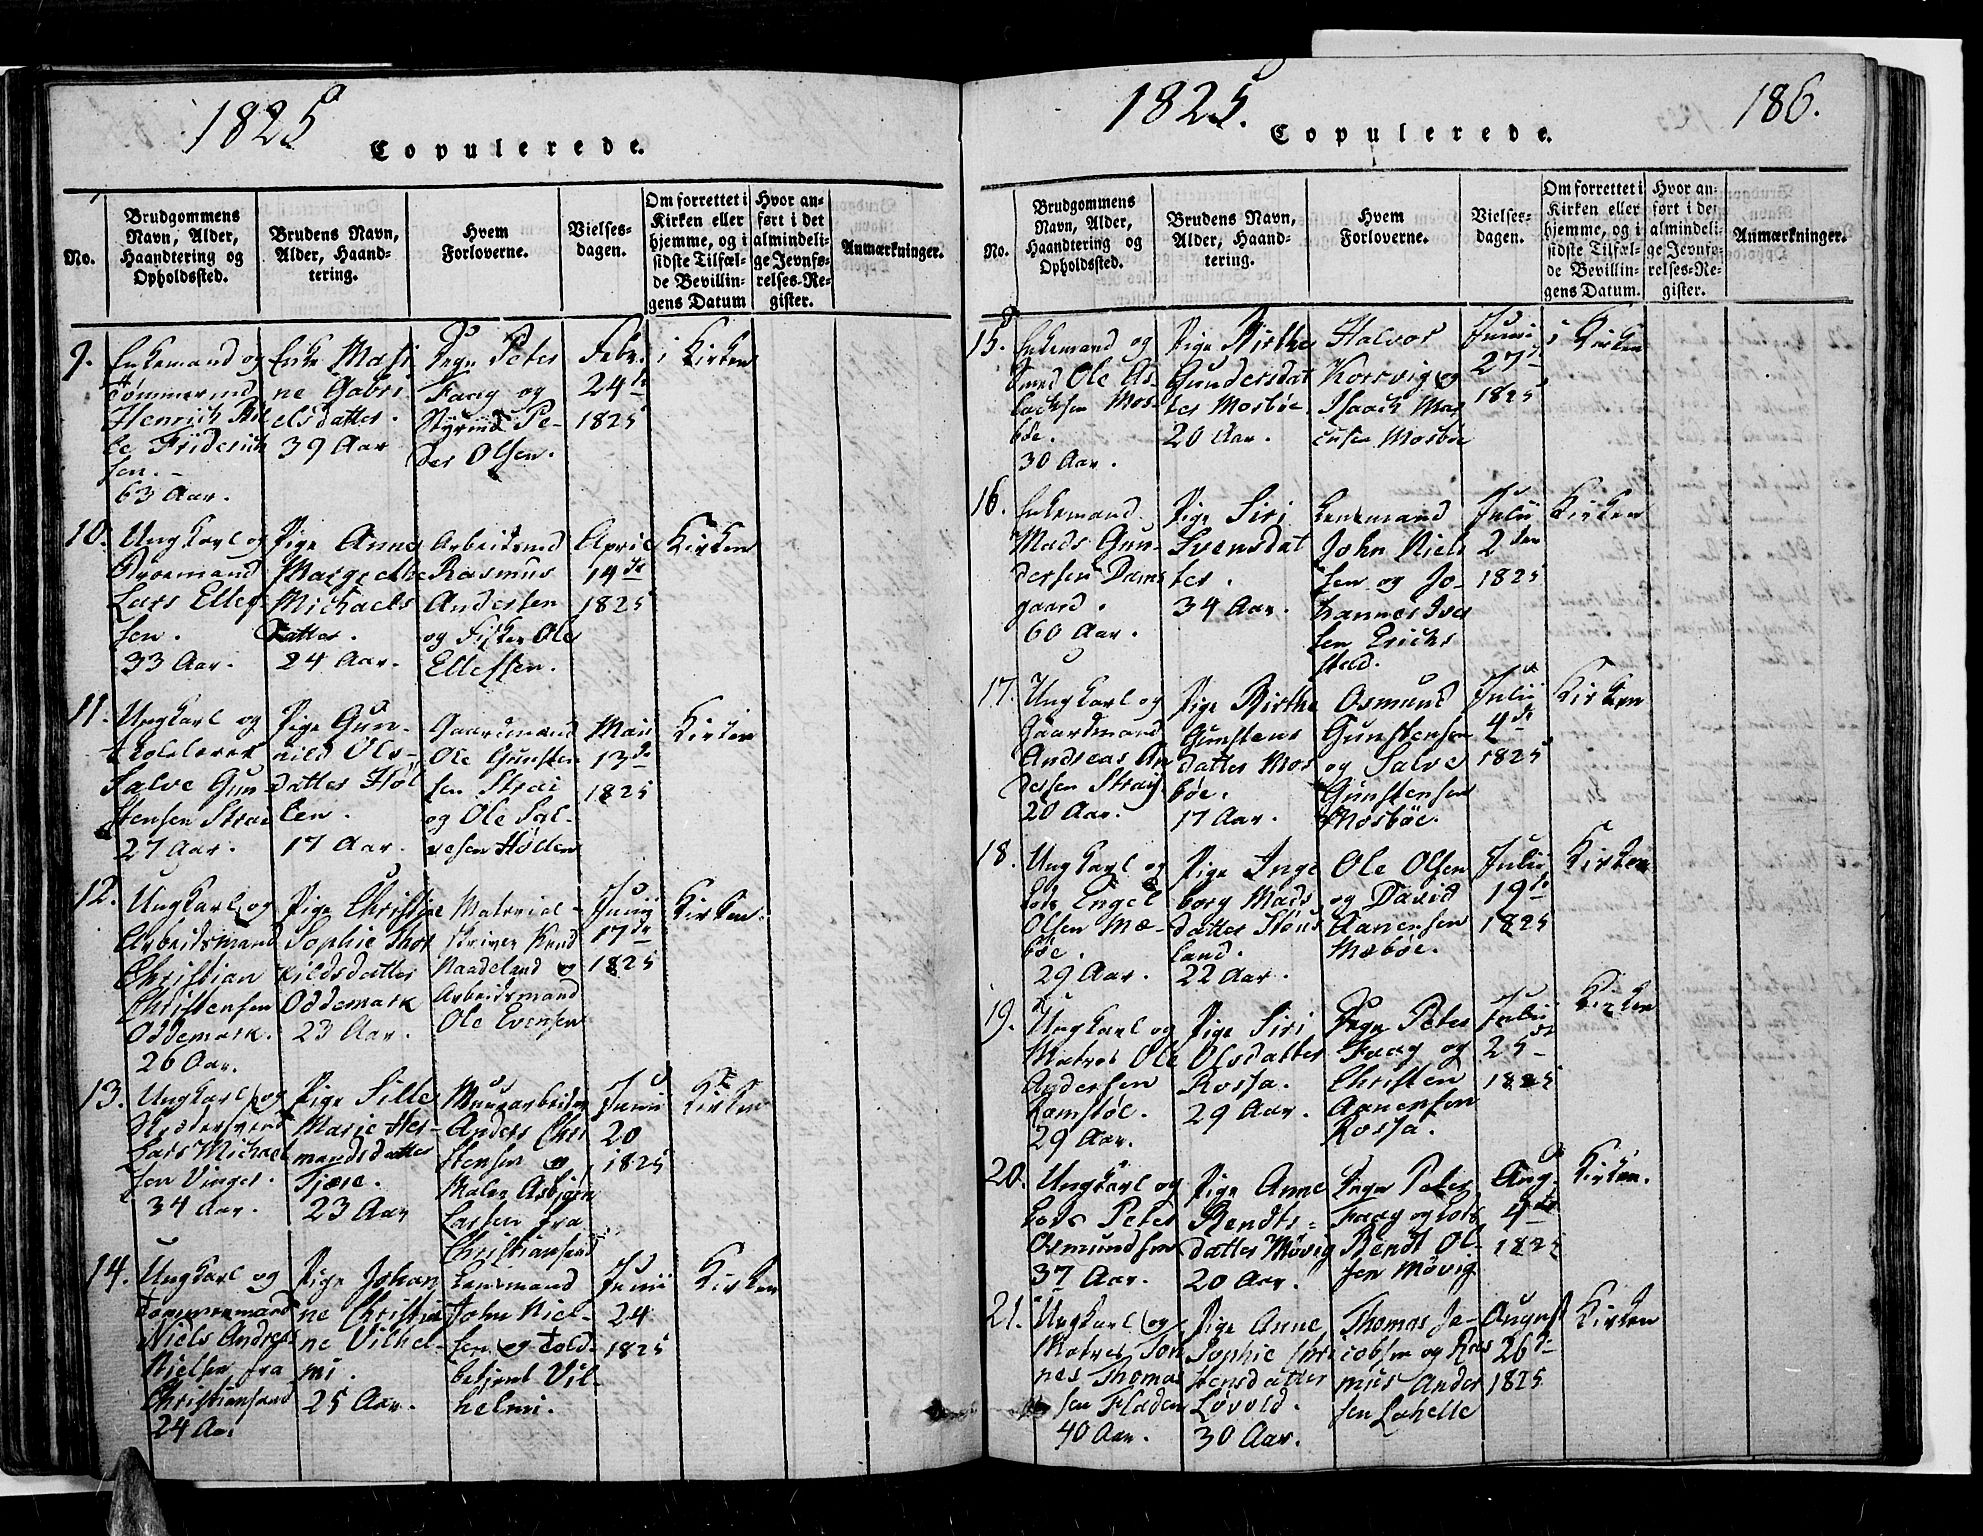 1825
Copulerede.
No.
Brudgommens
Navn, Alder,
Haandtering og
Opholdssted.
Brudens Navn,
Alder, Haand-
tering.
Hvem
Forloverne.
Vielses-
dagen.
Om forrettet i
Kirken eller
hjemme, og i
sidste Tilfæl-
de Bevillin-
gens Datum
Hvor an-
ført i det
almindeli-
ge Jevnfø-
relses-Re-
gister.
Anmærkninger.
9.
Enkemand og
Tømmermd
Henrich
Friderich
sen. -
63 Aar.
Enke Masi
ne Gabri
elsdatter.
39 Aar
Degn Peter
Faag og
Styrmd Pe-
der Olsen.
Febr.
24de
1825
i Kirken
10.
Ungkarl og
Lars Ellef
sen.
33 Aar.
Pige Anne
Margrethe
Michaels
datter.
24 Aar.
Arbeidsmd
Rasmus
Andersen
og Fisker Ole
Ellefsen.
April
14de
1825
Kirken
11.
Ungkarl og
Salve Gun
stensen Straie
27 Aar.
Pige Gun-
nild Ols-
datter Høl
len.
17 Aar.
Gaardmand
Ole Gunsten
sen Straie
og Ole Sal-
vesen Høllen
Maii
13de
1825
Kirken
12.
Ungkarl og
Arbeidsmand
Christian
Christensen
Oddemark.
26 Aar.
Pige Christine
Sophie Thor
kildsdatter
Oddemark
23 Aar.
Material-
skriver Knud
Raadeland og
Arbeidsmand
Ole Evensen
Junij
17de
1825
Kirken.
13.
Ungkarl og
Skreddersvend
Lars Michael
sen Vinger.
34 Aar.
Pige Sille
Marie Her-
mandsdatter
Tjære.
23 Aar
Muurarbeider
Anders Chri
stensen og
Maler Asbjørn
Larsen fra
Christiansand
Junii
20
1825
Kirken
14.
Ungkarl og
Tømmermand
Niels Andreas
Nielsen fra
Christiansand
24 Aar
Pige Johan
ne Christia
ne Vilhel-
mi.
25 Aar.
Lensmand
John Niel-
sen og Told-
betjent Vil-
helmi.
Junii
24
1825
Kirken
1825.
186.
Copulerede.
No.
Brudgommens
Navn, Alder,
Haandtering og
Opholdssted.
Brudens Navn,
Alder, Haand-
tering.
Hvem
Forloverne.
Vielses-
dagen.
Om forrettet i
Kirken eller
hjemme, og i
sidste Tilfæl-
de Bevillin-
gens Datum.
Hvor an-
ført i det
almindeli-
ge Jevnfø-
relses-Re-
gister.
Anmærkninger.
15.
Enkemand og
Smed Ole As-
lachsen Mos-
bøe.
30 Aar.
Pige Birthe
Gundersdat
ter Mosbøe.
20 Aar.
Halvor
Korsvig og
Isaach Mar
cusen Mosbøe
Junii
27de
1825
i Kirken
16.
Enkemand
Mads Gun-
dersen Dams
gaard.
60 Aar.
Pige Siri
Svensdat
ter.
34 Aar.
Lensmand
John Niel
sen og Jo-
hannes Iver
sen Erichs
stad.
Julii
2den
1825
Kirken
17.
Ungkarl og
Gaardmand
Andreas An
dersen Straij.
20 Aar.
Pige Birthe
Gunstens
datter Mos
bøe.
17 Aar.
Osmund
Gunstensen
og Salve
Gunstensen
Mosbøe.
Julii
4de
1825
Kirken
18.
Ungkarl og
Lods Engel
Olsen Mæ-
bøe.
29 Aar.
Pige Inge
borg Mads
datter Støus
land.
22 Aar.
Ole Olsen
og David
Aanensen
Mæbøe.
Julii
19de
1825
Kirken
19.
Ungkarl og
Matros Ole
Andersen
Ramsløe.
29 Aar.
Pige Siri
Olsdatter
Rossa.
29 Aar.
Degn Peter
Faag og
Christen
Aanensen
Rossa.
Julii
25de
1825
Kirken
20.
Ungkarl og
Lods Peter
Osmundsen
37 Aar.
Pige Anne
Bendts-
datter Møvig
20 Aar.
Degn Peter
Faag og Lods
Bendt Ol-
sen Møvig
Aug.
4de
1825
Kirken.
21.
Ungkarl og
Matros Ton
nes Thomas
sen Fladen
40 Aar.
Pige Anne
Sophie Chri
stensdatter
Løvold.
30 Aar.
Thomas Ja-
cobsen og Ras
mus Ander
sen Lahelle
August
26de
1825
Kirken